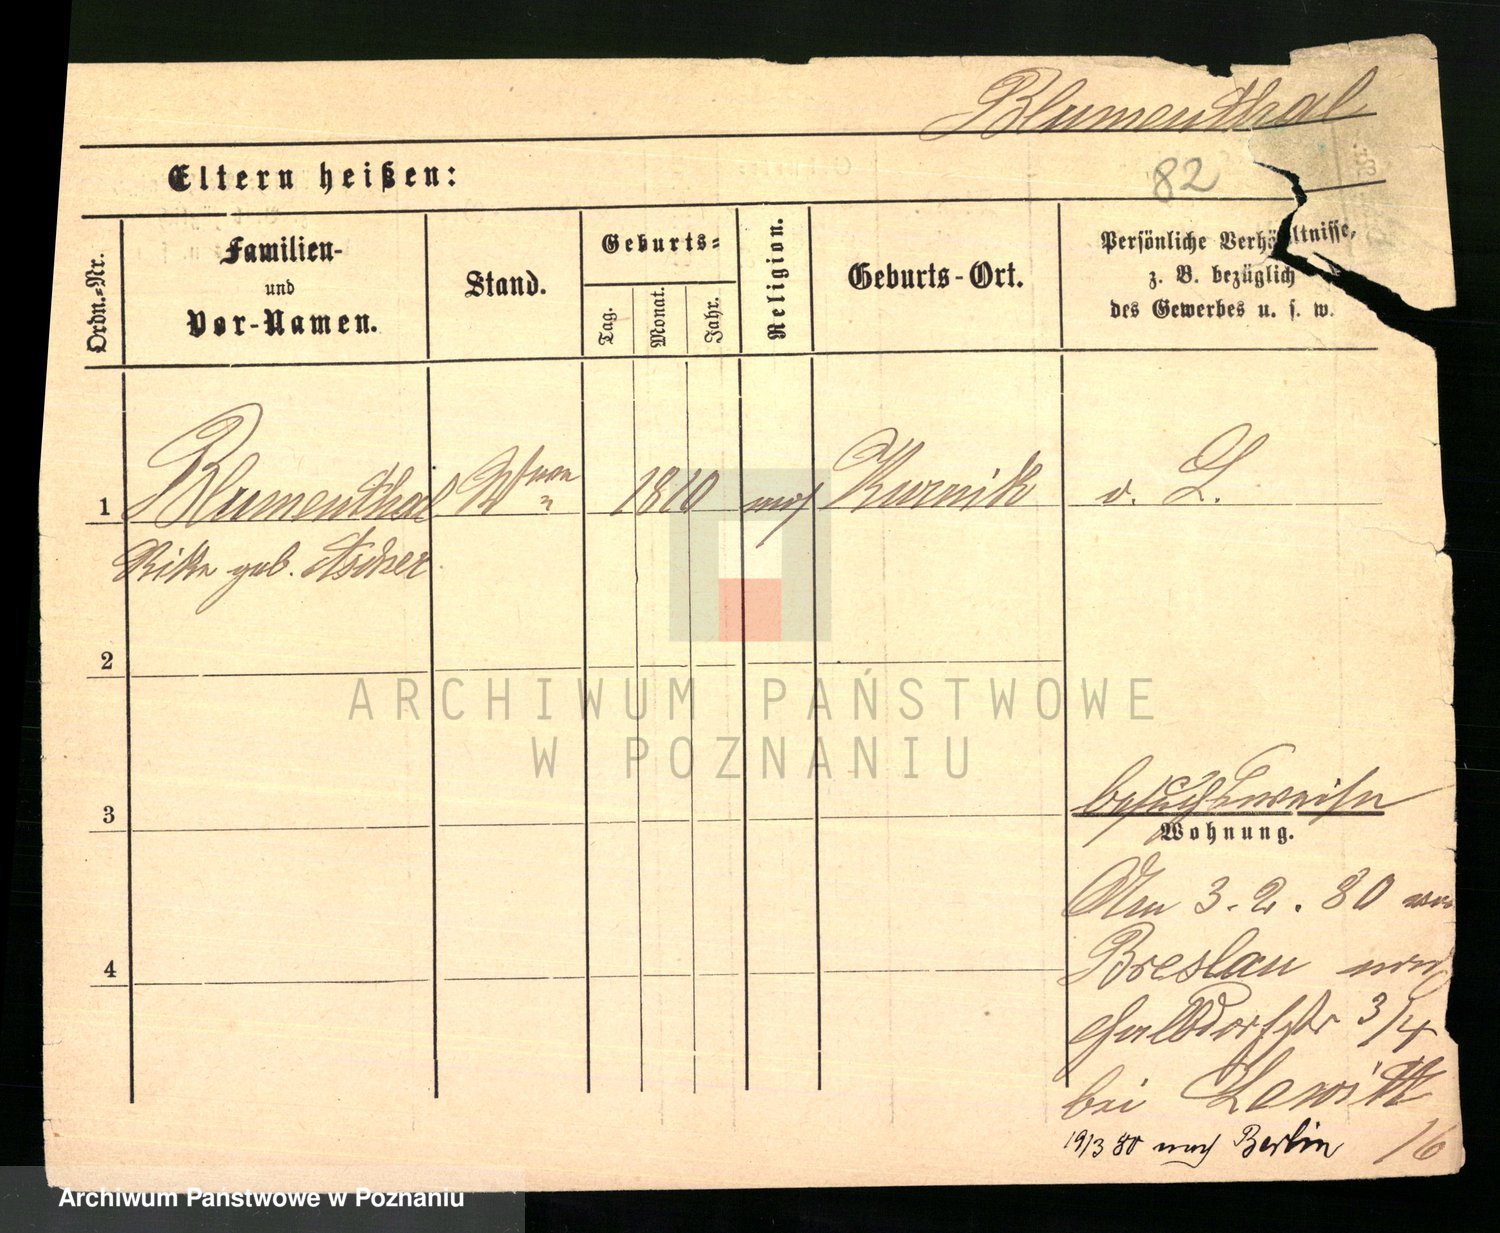 Blumenthal
82
Eltern heißen:
Ordn.-Nr.
Familien-
und
Vor-Namen.
Stand.
Geburts-
Tag.
Monat.
Jahr.
Religion.
Geburts-Ort.
Persönliche Verhältnisse,
z. B. bezüglich
des Gewerbes u. s. w.
1 Blumenthal Wwe 1810 mos Kurnik v. L.
Rike geb. Ascher
2
3
4
besuchsweise
Wohnung.
Am 3. 2. 80 von
Breslau nach
Halbdorfstr 3/4
bei Lewitt
19/3 80 nach Berlin 16
ARCHIWUM PAŃSTWOWE
W POZNANIU
Archiwum Państwowe w Poznaniu